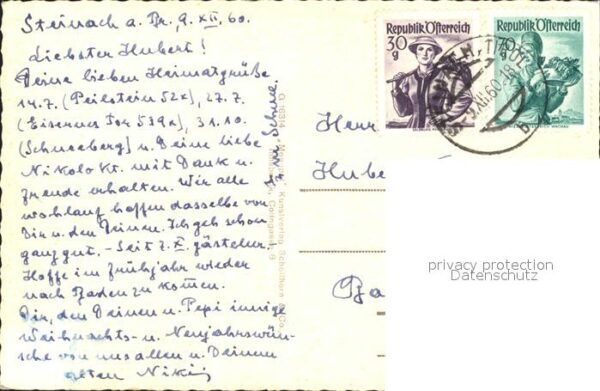 Steinach a. Br., 9. XII. 60.
Liebster Hubert!
Deine lieben Heimatgrüße
14.7. (Peilstein 52x), 27.7.
(Eisernes Tor 539x), 31.10.
(Schneeberg) u. Deine liebe
Nikolo Kt. mit Dank u.
Freude erhalten. Wir alle
wohlauf hoffen dasselbe von
Dir u. den Deinen. Ich geh schon
ganz gut. - Seit 7. X. gästeleer.
Hoffe im Frühjahr wieder
nach Baden zu kommen.
Dir, den Deinen u. Pepi innige
Weihnachts- u. Neujahrswün-
sche von uns allen u. Deinem
alten Niki
Schnee
Republik Österreich
30
g
Republik Österreich
70
g
Herr
Hube
Ba
privacy protection
Datenschutz